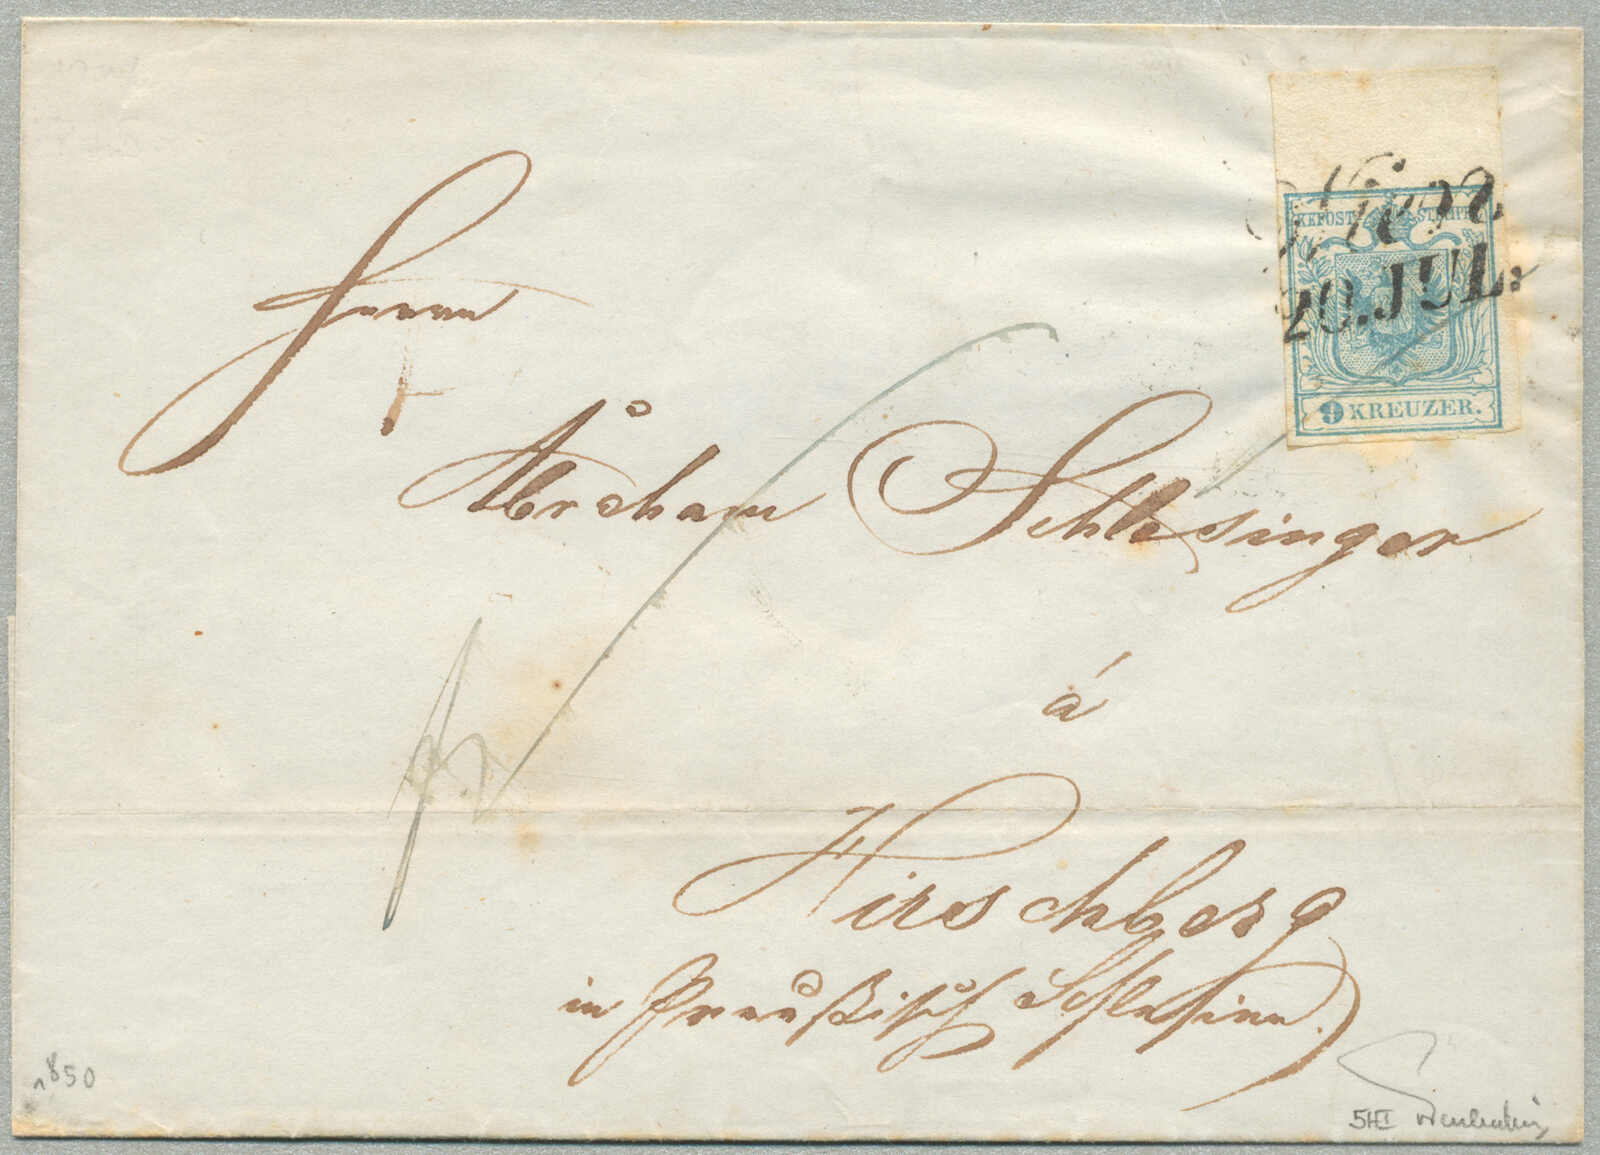 Wien
20. JUL.
KK POST-STEMPEL
9 KREUZER.
Herrn
Abraham Schlesinger
á
Hirschberg
in Preußisch Schlesien.
1850
5HI